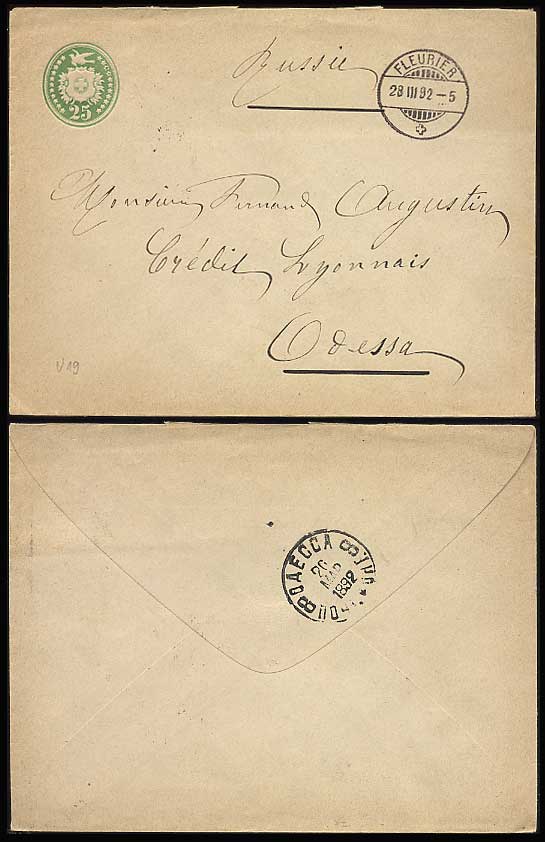 25
Russie
FLEURIER
28 III 92 – 5
Monsieur Fernand Augustin
Crédit Lyonnais
Odessa
V 19
8 ОДЕССА 8
МАР
1892